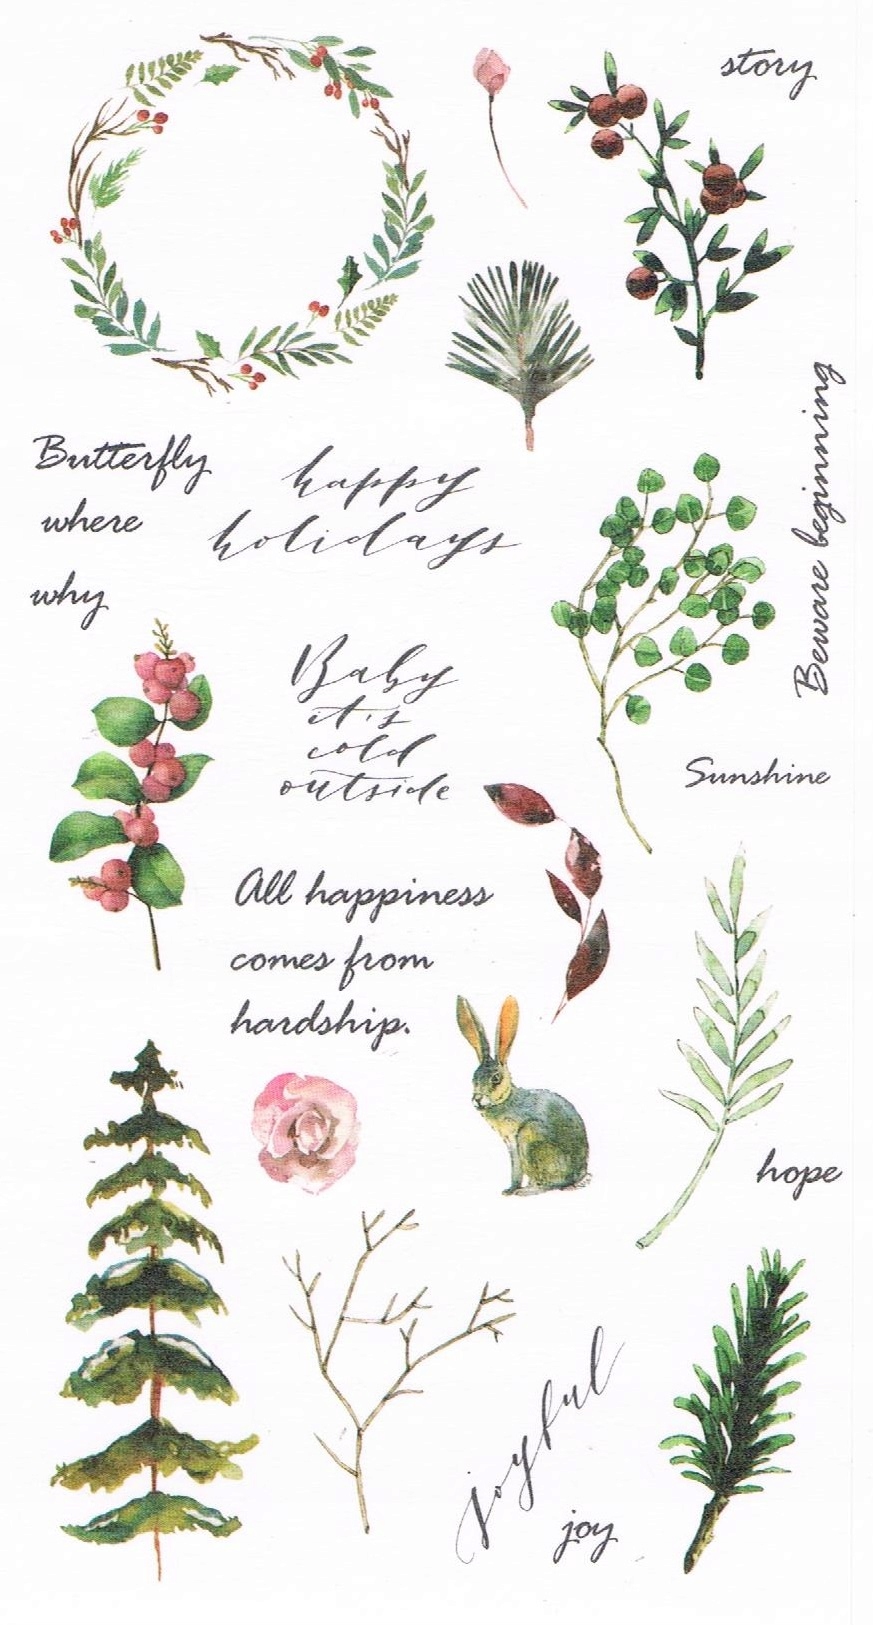 story
Beware beginning
Butterfly
where
why
happy
holidays
Baby
it's
cold
outside
Sunshine
All happiness
comes from
hardship.
hope
joyful
joy